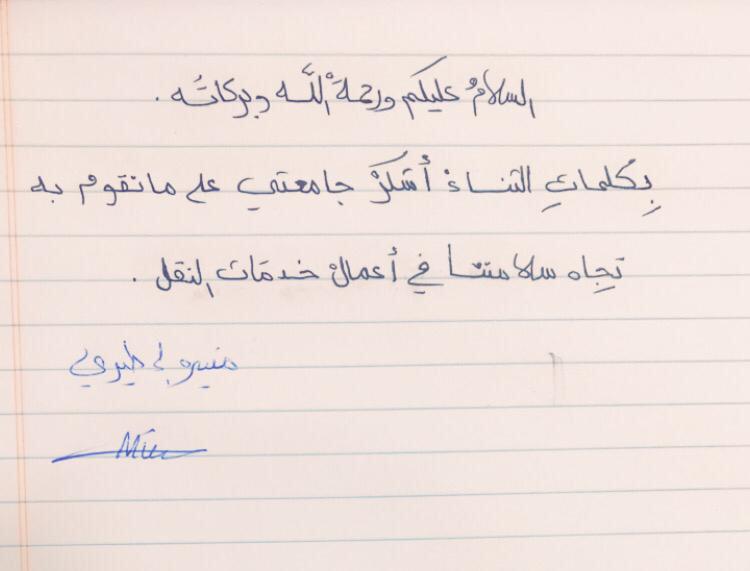 السلامُ عليكم ورحمةُ اللَّه وبركاتُه .
بِكلماتِ الثناءْ أشكرْ جامعتي على ماتقوم به
تجِاه سلامتنا في أعمالْ خدمَات النقل .